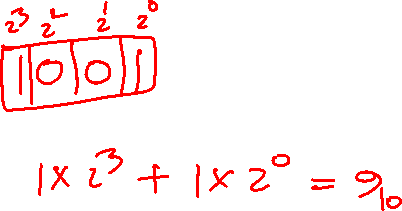 2³ 2² 2¹ 2⁰
1 0 0 1
1 x 2³ + 1 x 2⁰ = 9₁₀